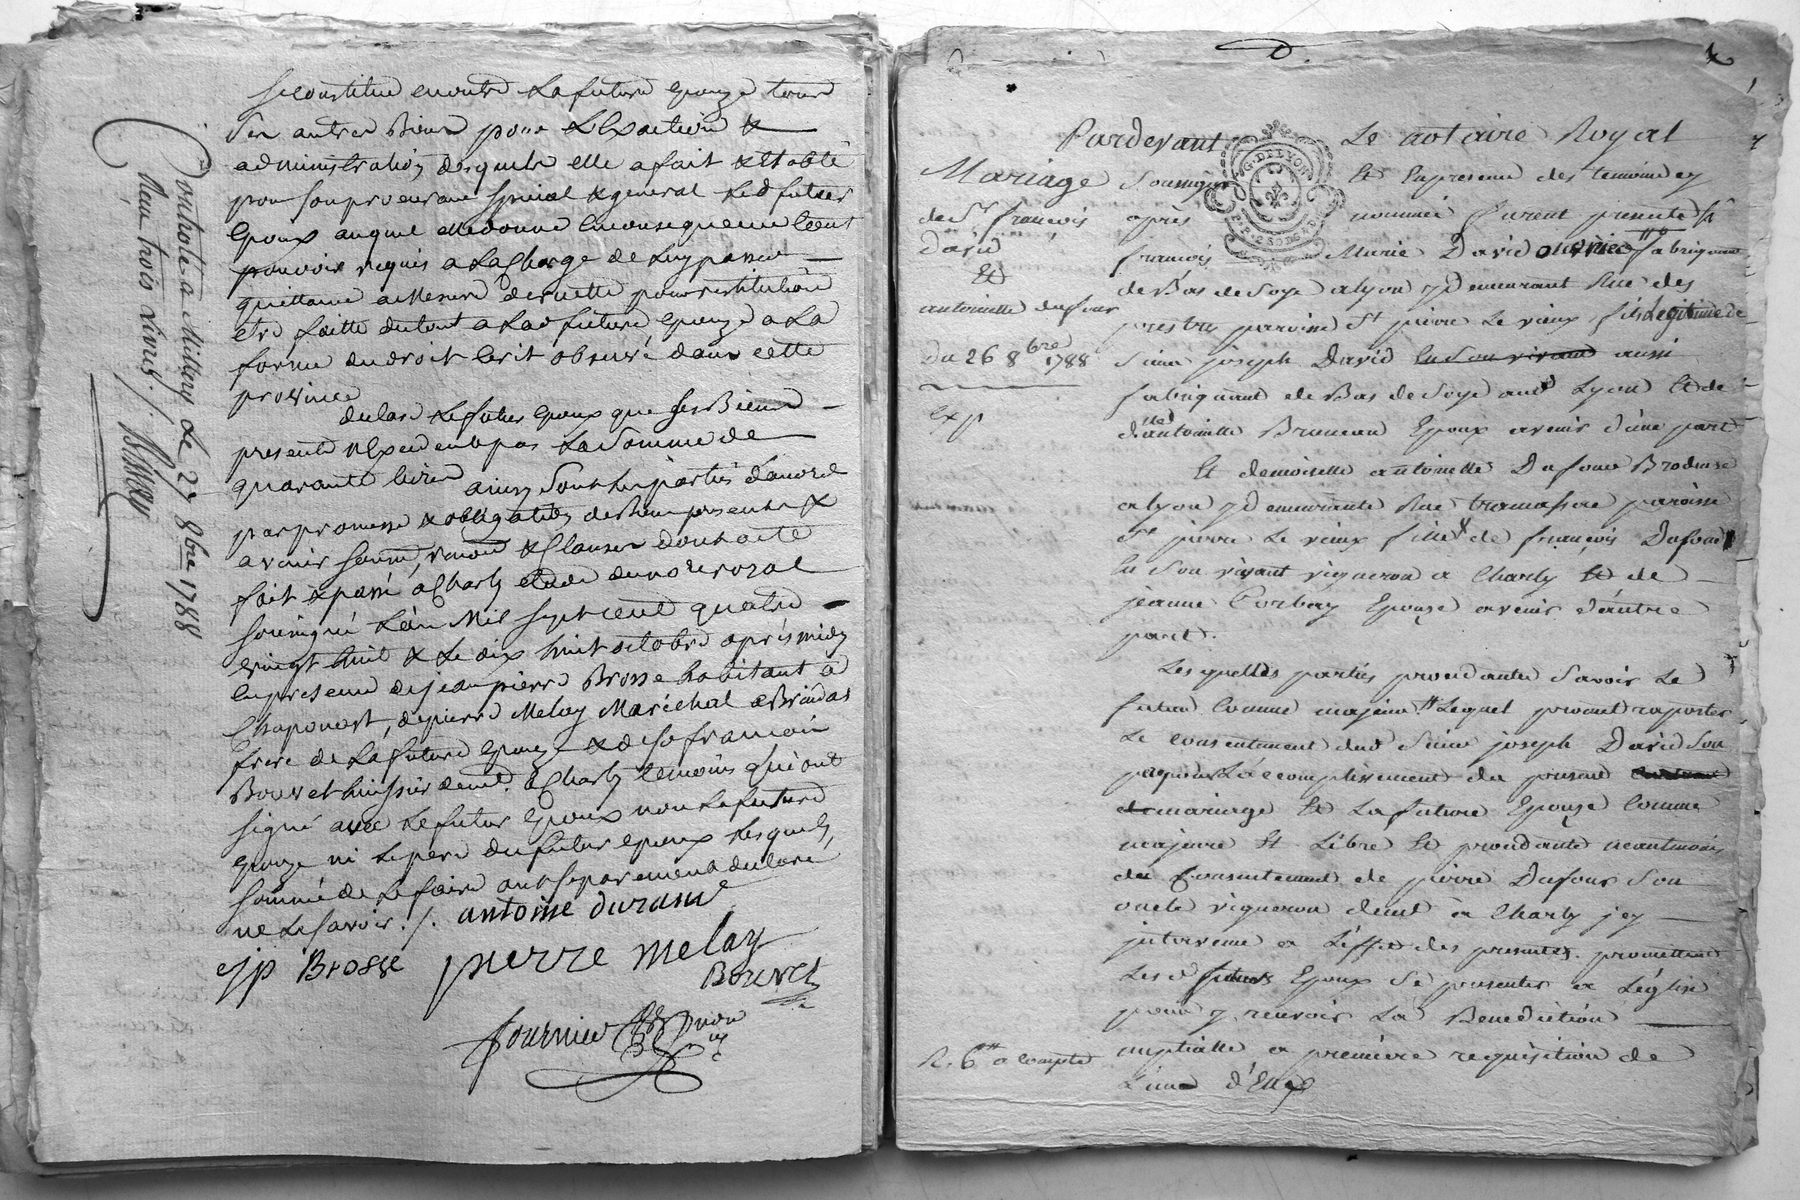 se constitue en outre la future epouze tous
ses autres Biens pour l'exaction &
administration desquels elle a fait & etabli
pour son procureur special & general led futur
Epoux auquel elle donne en consequence tout
pouvoir requis a la charge de luy passer
quittance a mesure de recette pour restitution
etre faitte du tout a lad future epouze a la
forme du droit Ecrit observé dans cette
province
declare le futur epoux que ses Biens
presents n'Excedent pas la somme de
quarante livres ainsy sont les parties d'accord
par promesse & obligation de Biens presents &
avenir soumis, renon & Clauses dont acte
fait & passé a Charly etude du no.re royal
soussigné L'an Mil sept cent quatre
vingt huit & Le dix huit octobre après midy
en presence de jean pierre Brosse habitant à
Chaponost, de pierre Melay Maréchal a Brindas
frere de La future epouze & de s.r francois
Bouvet huissier demt. à Charly temoins qui ont
signé avec Le futur Epoux non La future
epouze ni Le pere du futur epoux Lesquels
sommé de Le faire ont separement declaré
ne Le savoir ./. antoine durand
jp Brosse pierre melay
Bouvet
fournier
Controlé a Millery Le 27 8bre 1788
Reçu trois Livres ./.
D.
Pardevant Le notaire Royal
Mariage
de Sr. francois
David
Et
antoinette dufour
du 26 8bre 1788
exp
R. 6tt a compte
soussigné Et En presence des temoins cy
après nommés furent presents sr.
francois Marie David ouvrier fabriquant
de Bas de Soye a lyon y demeurant Rue des
prestres paroisse St. pierre Le vieux fils Legitime de
sieur joseph David En son vivant aussi
fabriquant de Bas de Soye aud Lyon Et de
antoinette Bruneau Epoux avenir d'une part
Et demoiselle antoinette Dufour Brodeuse
a lyon y demeurante Rue tramassac paroisse
St. pierre Le vieux fille de francois Dufour
En son vivant vigneron a Charly Et de
jeanne Corbay Epouze avenir d'autre
part.
Lesquelles parties procedantes Savoir Le
futur Comme majeur Lequel promet raporter
Le consentement dud Sieur joseph David Son
pere pour L'accomplissement du present
mariage Et La future Epouze Comme
majeure Et Libre Et procedante neantmoins
du Consentement de pierre Dufour Son
oncle vigneron demt. a Charly icy
intervenu a L'effet des presentes. promettent
Lesd futurs Epoux Se presenter a L'église
pour y recevoir La Benediction
nuptialle a premiere requisition de
L'une d'Elles